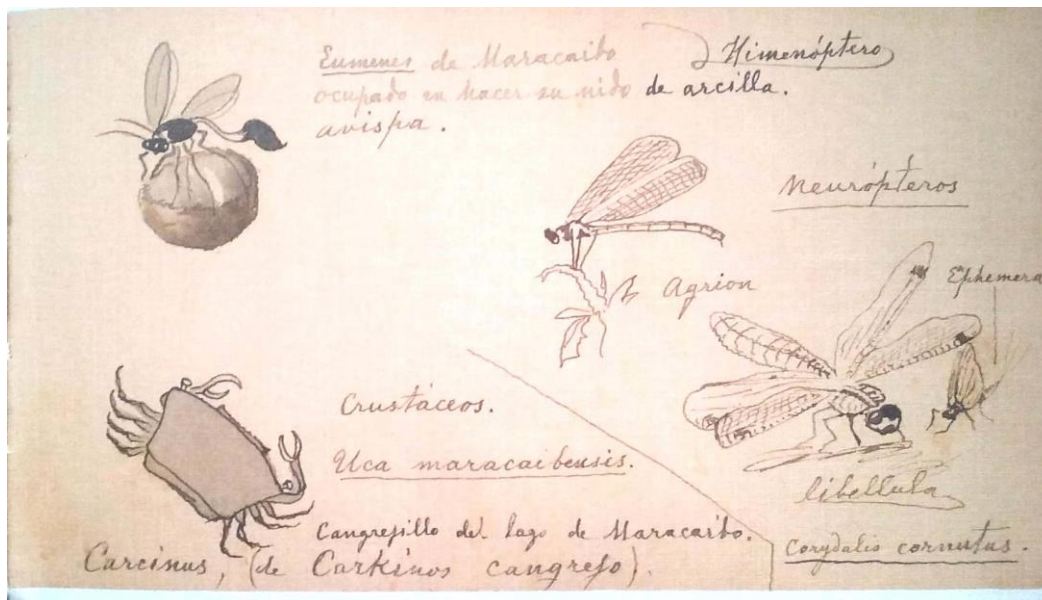 Eumenes de Maracaibo
Himenóptero
ocupado en hacer su nido de arcilla.
avispa.
Neurópteros
Agrion
Ephemera
Crustáceos.
Uca maracaibensis.
libellula
Cangrejillo del lago de Maracaibo.
Corydalis cornutus.
Carcinus, (de Carkinos cangrejo).